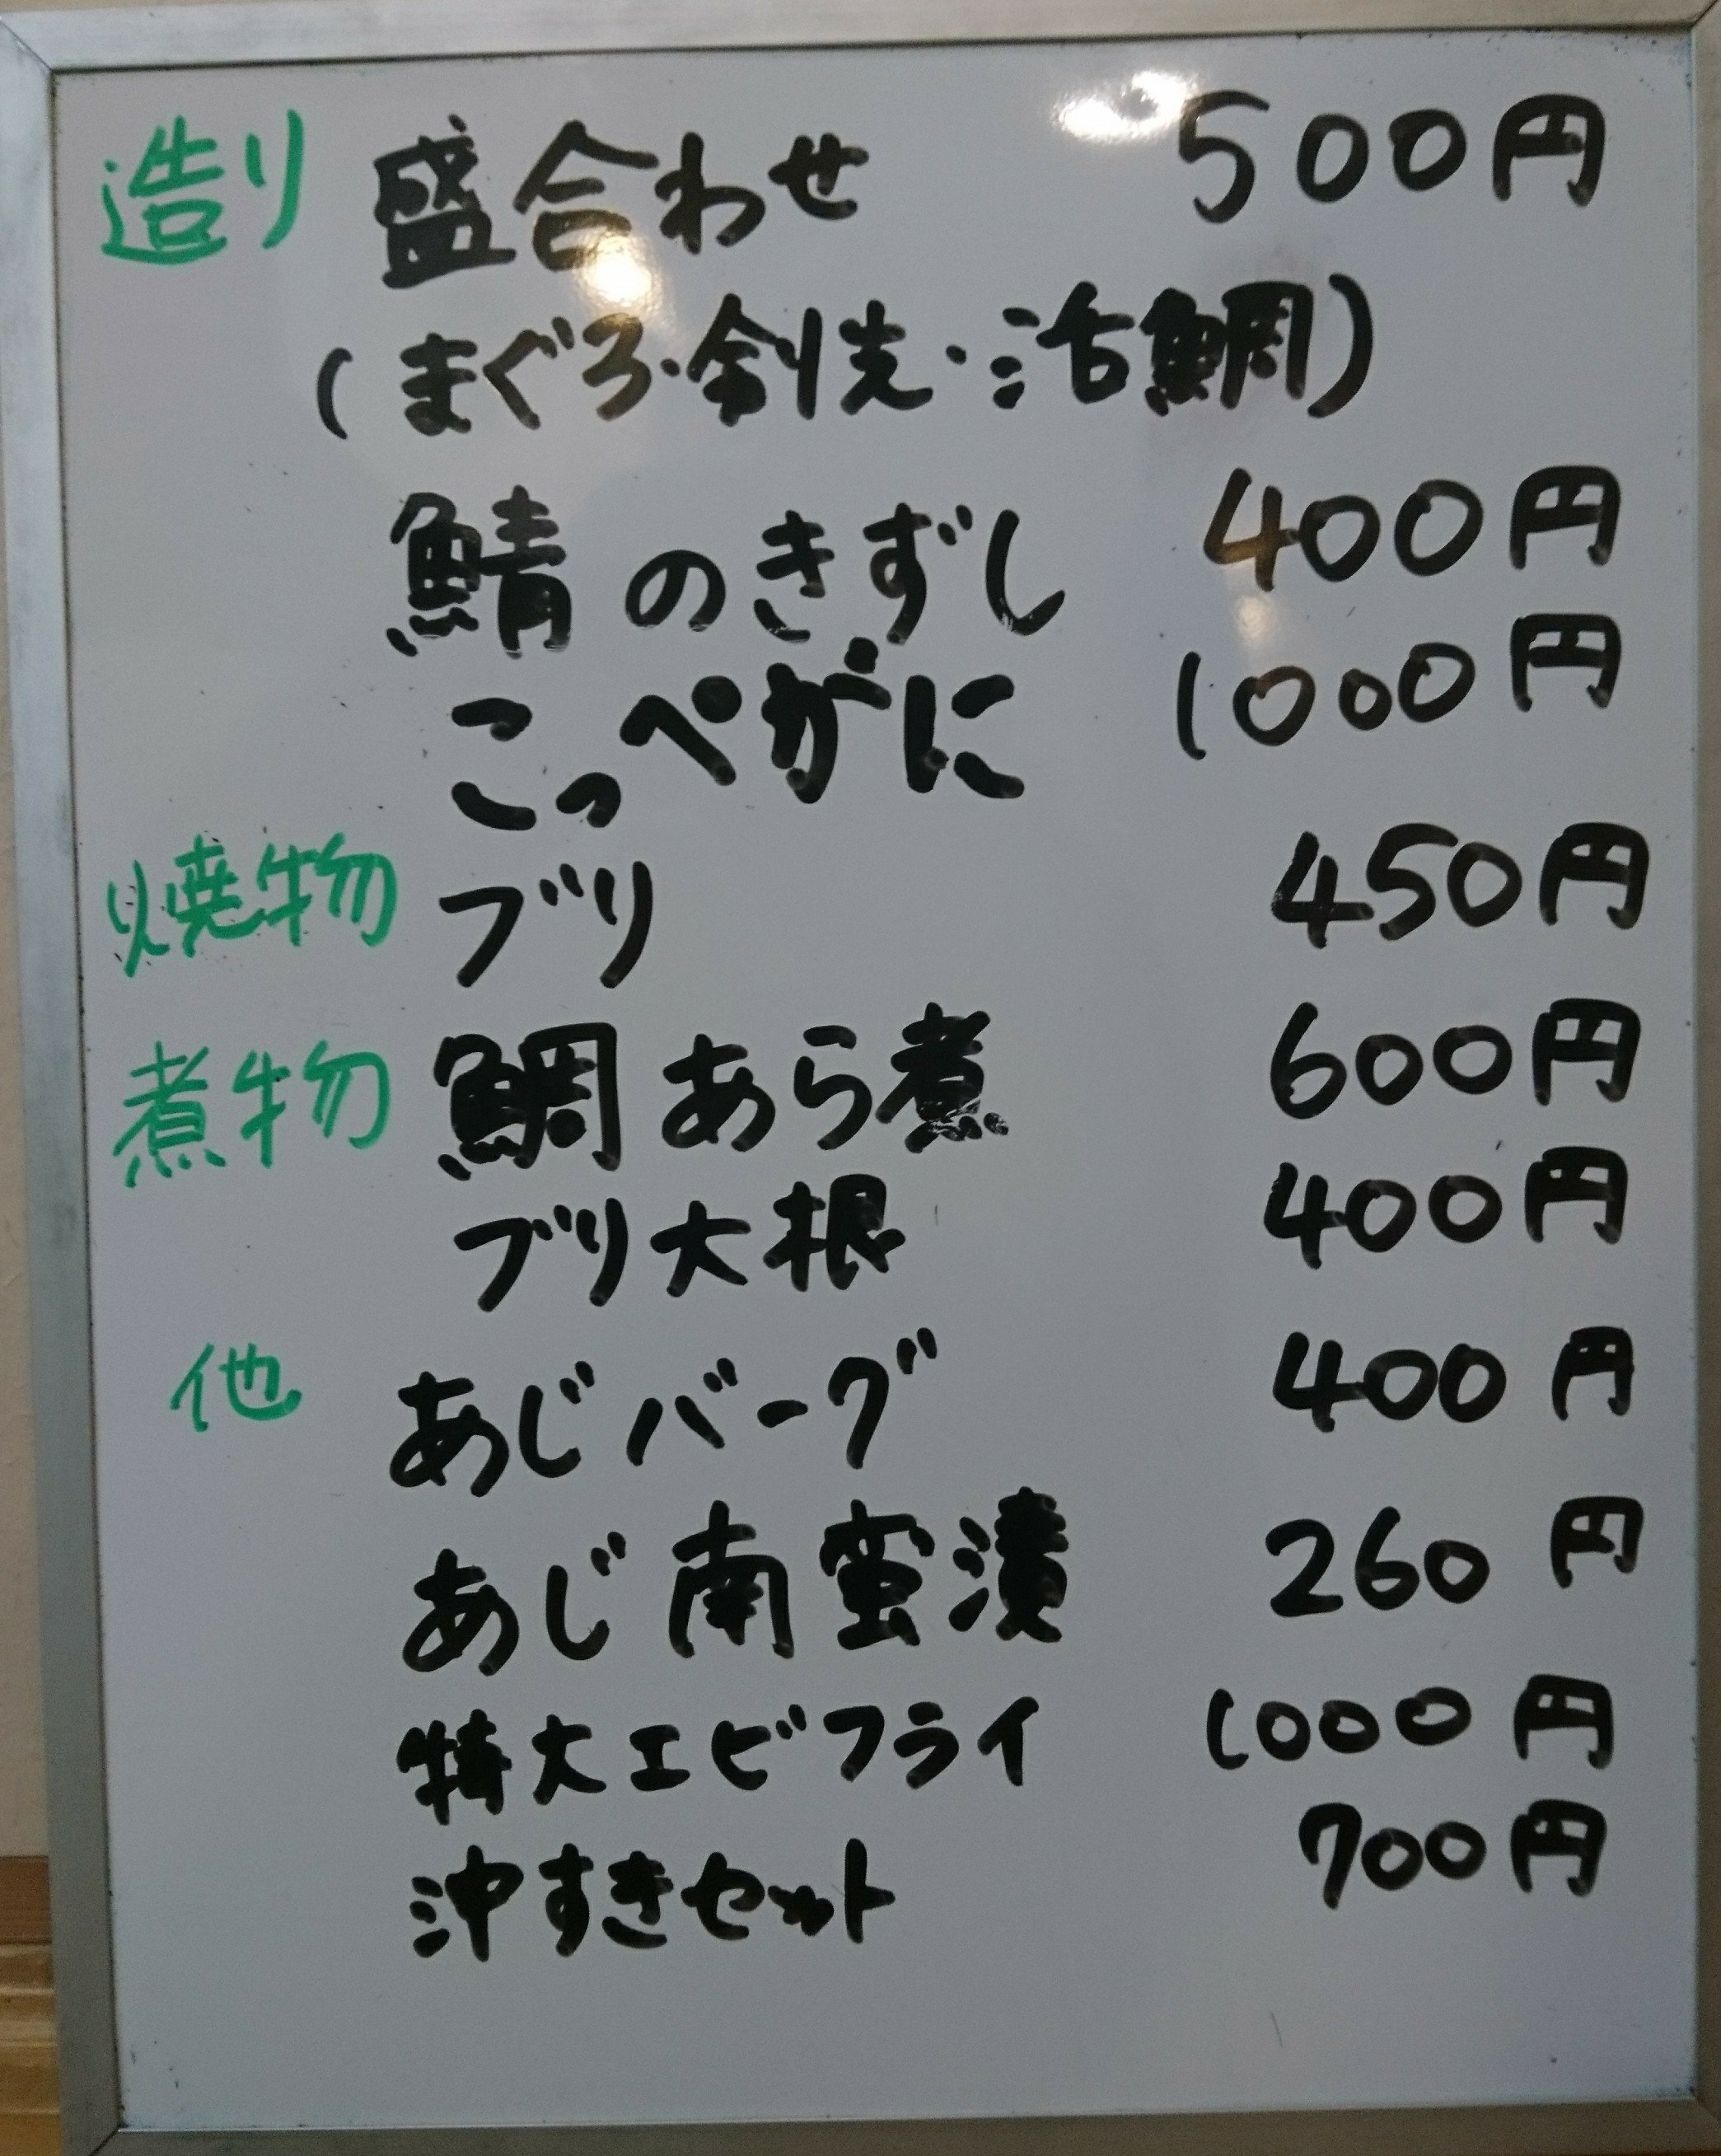 造り 盛合わせ 500円
(まぐろ・剣先・活鯛)
鯖のきずし 400円
こっぺがに 1000円
焼物 ブリ 450円
煮物 鯛あら煮 600円
ブリ大根 400円
他 あじバーグ 400円
あじ南蛮漬 260円
特大エビフライ 1000円
沖すきセット 700円